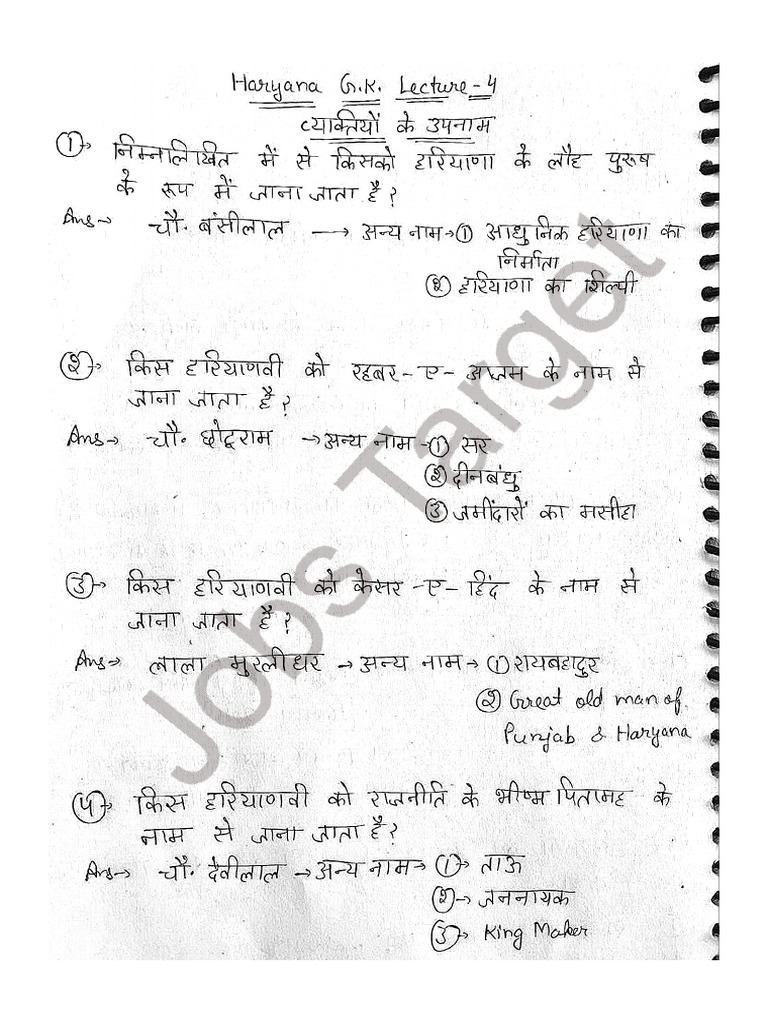 Haryana G.K. Lecture-4
व्यक्तियों के उपनाम
①→ निम्नलिखित में से किसको हरियाणा के लौह पुरुष
के रूप में जाना जाता है?
Ans→ चौ. बंसीलाल → अन्य नाम→① आधुनिक हरियाणा का
निर्माता
② हरियाणा का शिल्पी
②→ किस हरियाणवी को रहबर-ए-आजम के नाम से
जाना जाता है?
Ans→ चौ. छोटूराम →अन्य नाम→① सर
② दीनबंधु
③ जमींदारों का मसीहा
③→ किस हरियाणवी को केसर-ए-हिंद के नाम से
जाना जाता है?
Ans→ लाला मुरलीधर → अन्य नाम→ ① रायबहादुर
② Great old man of
Punjab & Haryana
④→ किस हरियाणवी को राजनीति के भीष्म पितामह के
नाम से जाना जाता है?
Ans→ चौ. देवीलाल →अन्य नाम→ ①→ ताऊ
②→ जननायक
③→ King Maker
Jobs Target